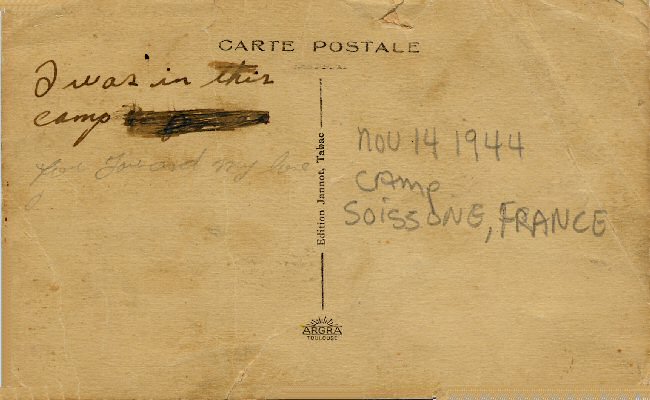 CARTE POSTALE
I was in this
camp
my love
Edition Jannot, Tabac
nov 14 1944
CAMP
SOISSONE, FRANCE
ARGRA
TOULOUSE